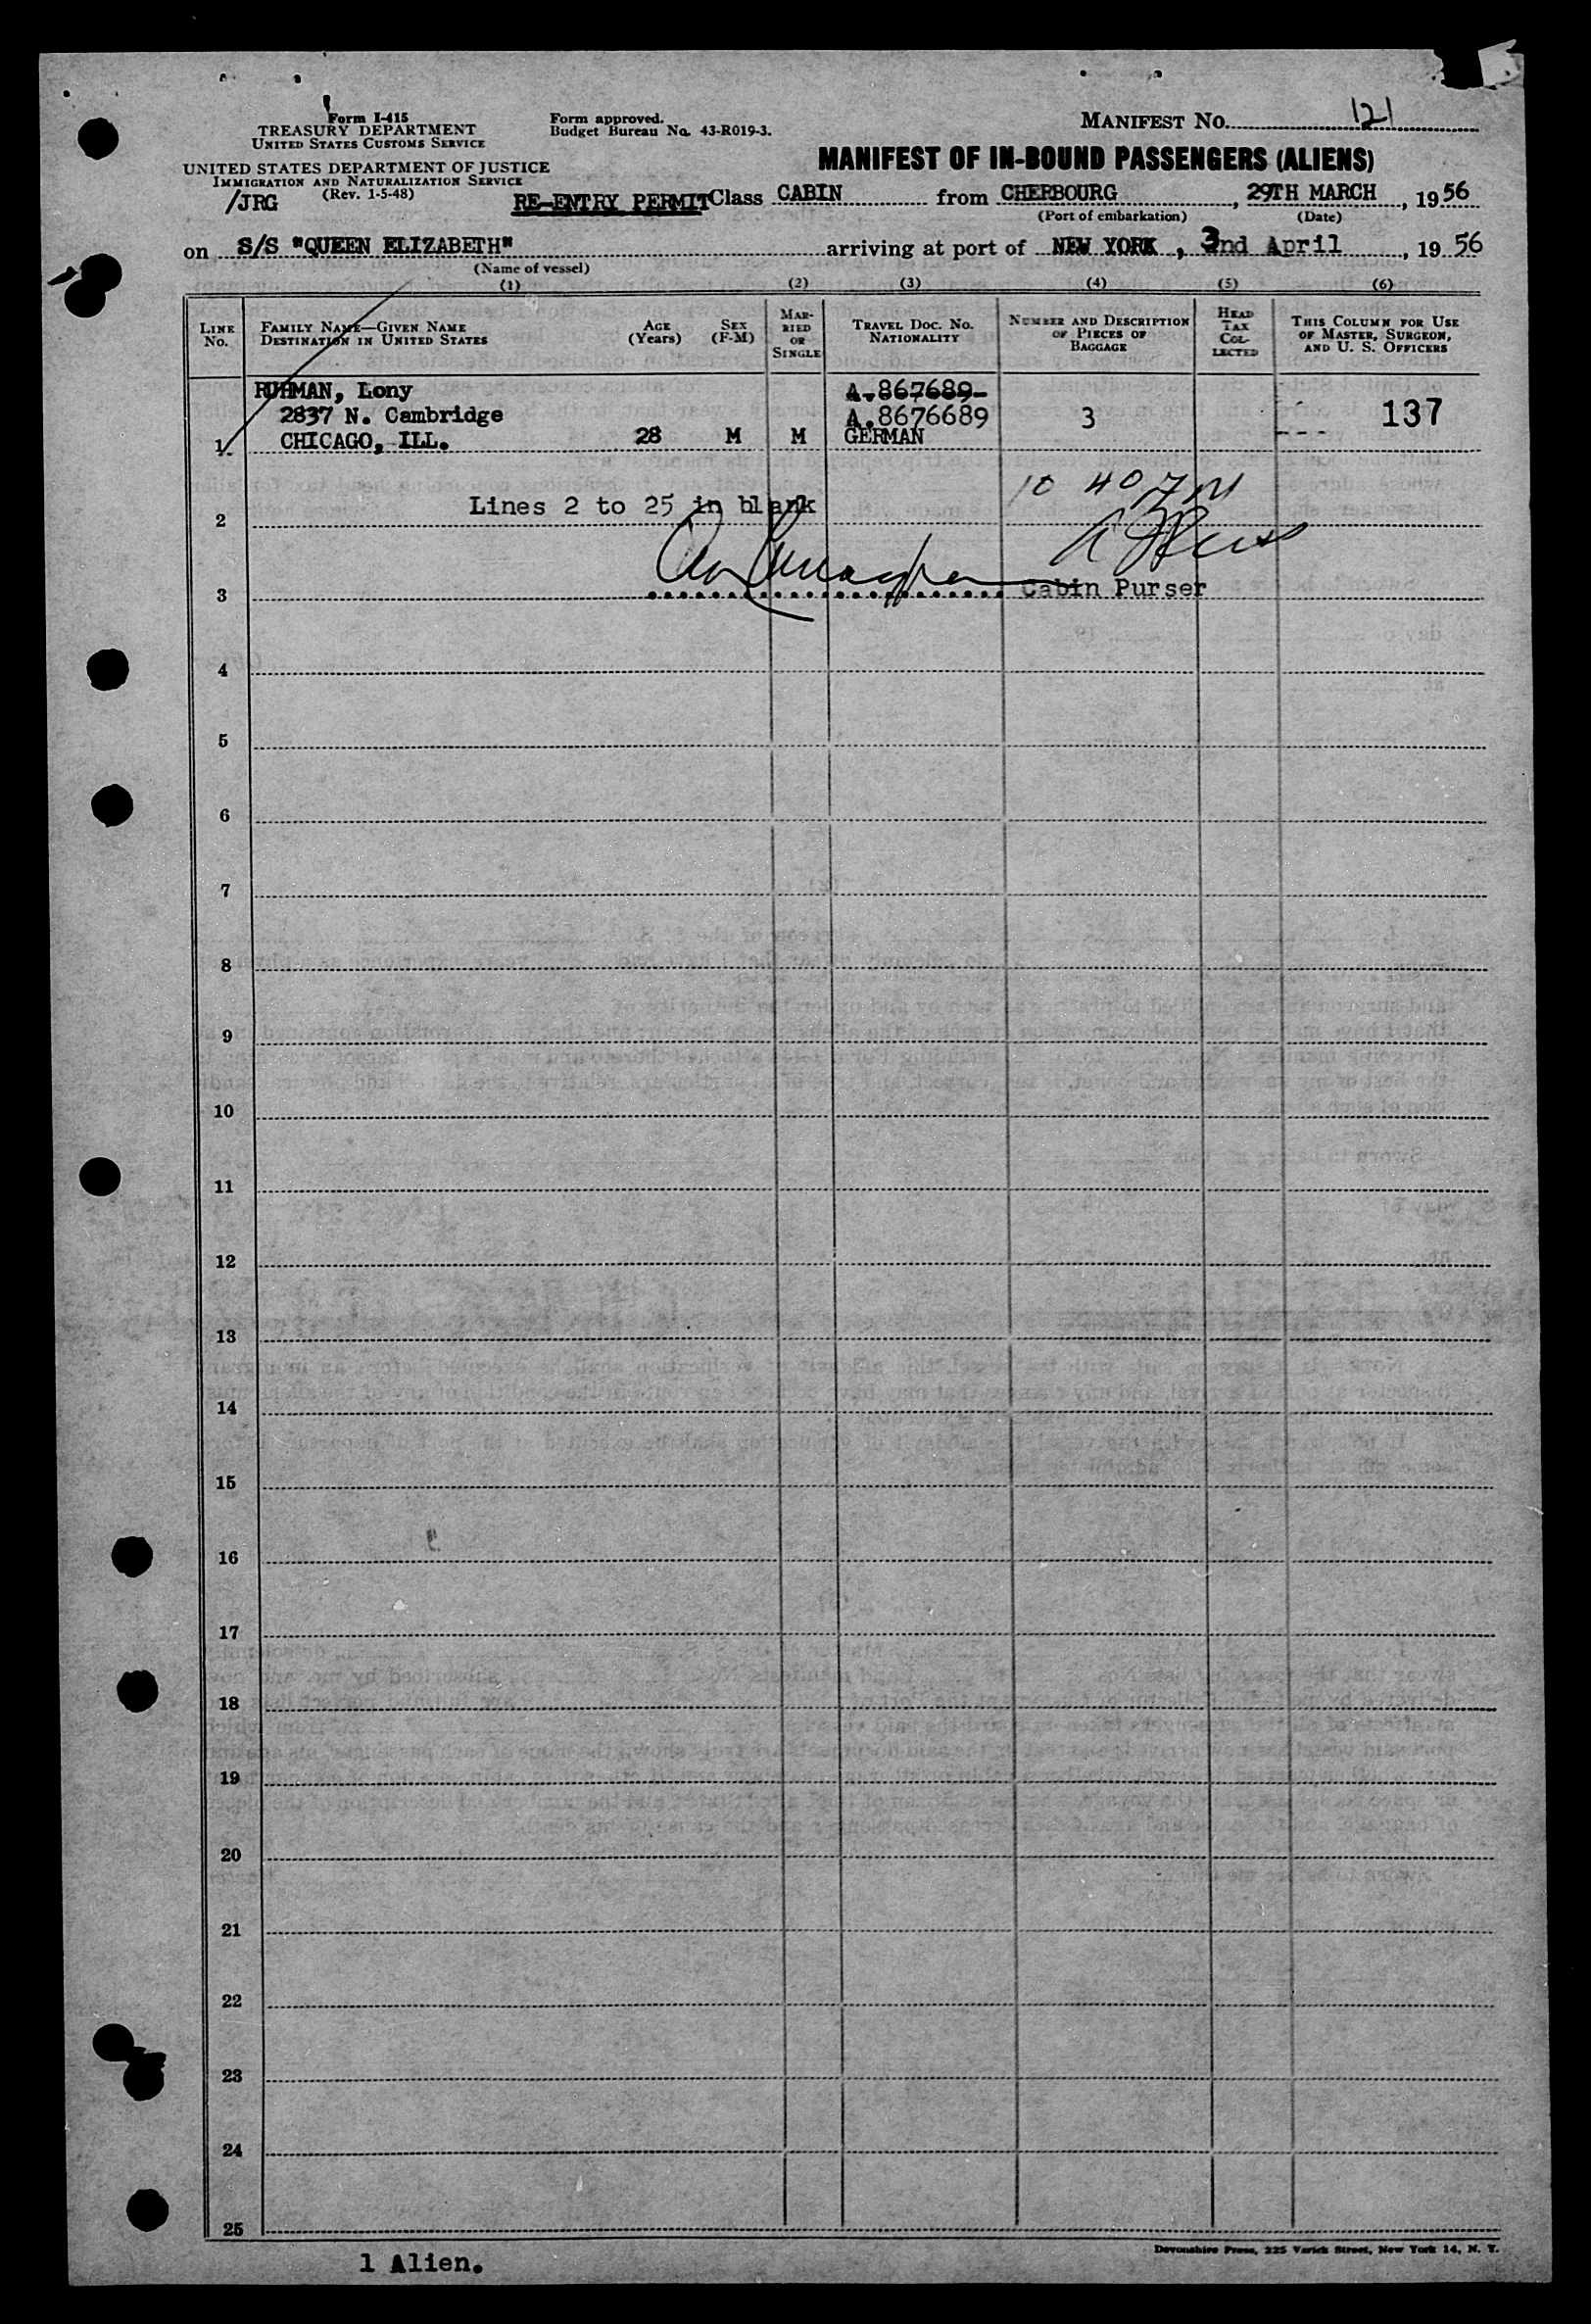 Form I-415
TREASURY DEPARTMENT
UNITED STATES CUSTOMS SERVICE
Form approved.
Budget Bureau No. 43-R019-3.
MANIFEST NO. 121
UNITED STATES DEPARTMENT OF JUSTICE
IMMIGRATION AND NATURALIZATION SERVICE
(Rev. 1-5-48)
/JRG
MANIFEST OF IN-BOUND PASSENGERS (ALIENS)
RE-ENTRY PERMIT Class CABIN from CHERBOURG, 29TH MARCH, 1956
(Port of embarkation) (Date)
on S/S "QUEEN ELIZABETH" arriving at port of NEW YORK, 3nd April, 1956
(Name of vessel)
(1) (2) (3) (4) (5) (6)
LINE NO.
FAMILY NAME—GIVEN NAME
DESTINATION IN UNITED STATES
AGE (Years)
SEX (F-M)
MARRIED OR SINGLE
TRAVEL DOC. NO.
NATIONALITY
NUMBER AND DESCRIPTION OF PIECES OF BAGGAGE
HEAD TAX COLLECTED
THIS COLUMN FOR USE OF MASTER, SURGEON, AND U. S. OFFICERS
RUHMAN, Lony A.867689-
2837 N. Cambridge A.8676689 3 137
1 CHICAGO, ILL. 28 M M GERMAN ---
10 40 7 M
2 Lines 2 to 25 in blank
3 Cabin Purser
4
5
6
7
8
9
10
11
12
13
14
15
16
17
18
19
20
21
22
23
24
25
Devonshire Press, 225 Varick Street, New York 14, N. Y.
1 Alien.